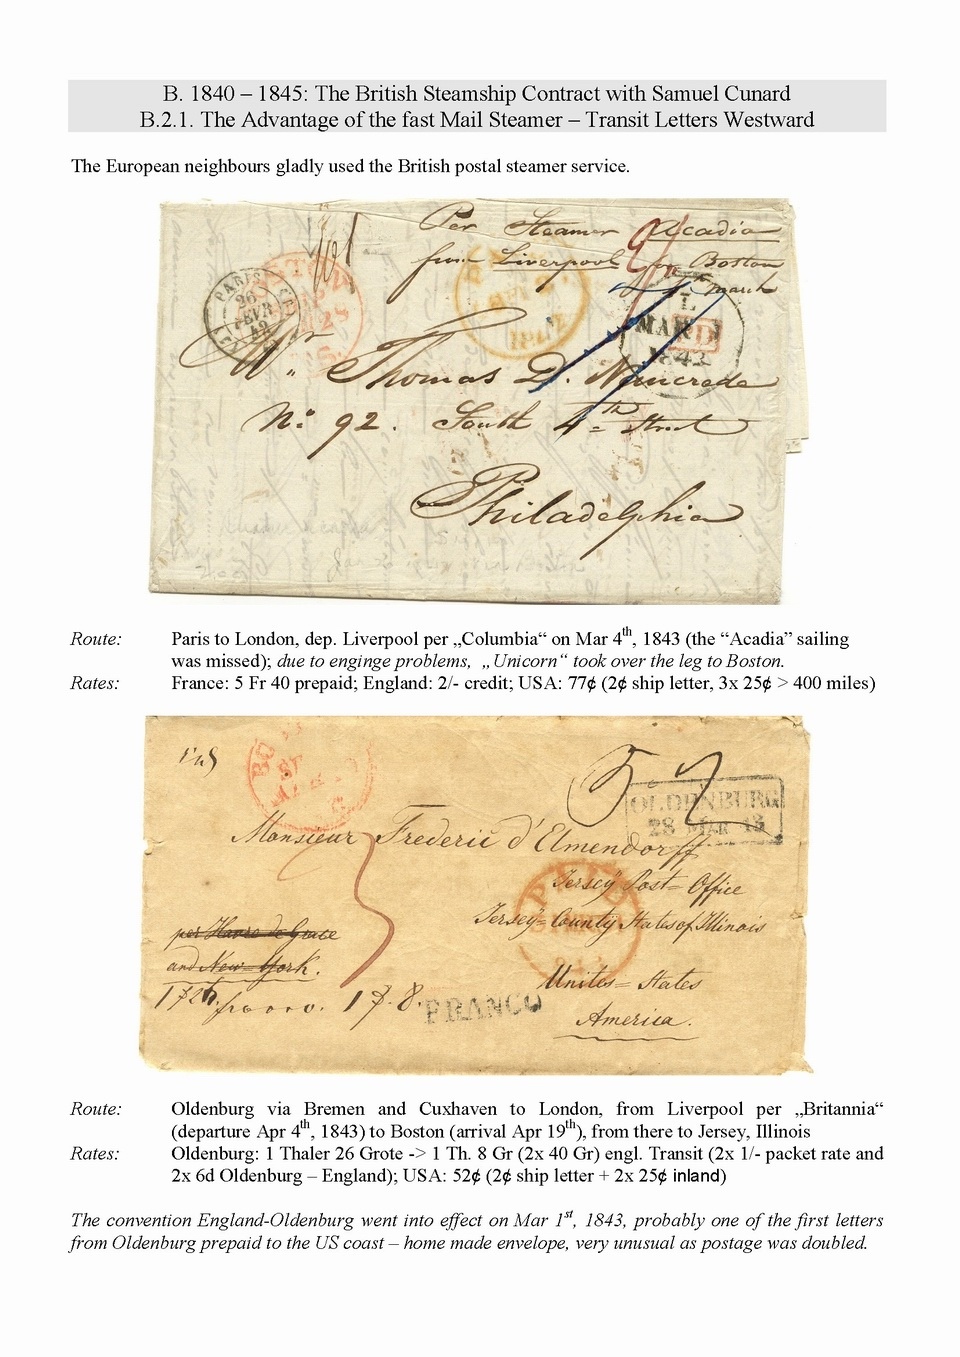 B. 1840 – 1845: The British Steamship Contract with Samuel Cunard
B.2.1. The Advantage of the fast Mail Steamer – Transit Letters Westward
The European neighbours gladly used the British postal steamer service.
Per Steamer Acadia
from Liverpool for Boston
March
PARIS
26
FEVR
PAID
1842
L
MAR
PD
Mr Thomas D. Nancrede
No 92. South 4th Street
Philadelphia
Route: Paris to London, dep. Liverpool per „Columbia“ on Mar 4th, 1843 (the “Acadia” sailing
was missed); due to enginge problems, „Unicorn“ took over the leg to Boston.
Rates: France: 5 Fr 40 prepaid; England: 2/- credit; USA: 77¢ (2¢ ship letter, 3x 25¢ > 400 miles)
52
OLDENBURG
28 MAR 43
Monsieur Frederic d'Elmendorff
Jersey Post=Office
Jersey=County States of Illinois
PAID
per Havre de Grace
and New-York.
Unites=States
FRANCO
America.
Route: Oldenburg via Bremen and Cuxhaven to London, from Liverpool per „Britannia“
(departure Apr 4th, 1843) to Boston (arrival Apr 19th), from there to Jersey, Illinois
Rates: Oldenburg: 1 Thaler 26 Grote -> 1 Th. 8 Gr (2x 40 Gr) engl. Transit (2x 1/- packet rate and
2x 6d Oldenburg – England); USA: 52¢ (2¢ ship letter + 2x 25¢ inland)
The convention England-Oldenburg went into effect on Mar 1st, 1843, probably one of the first letters
from Oldenburg prepaid to the US coast – home made envelope, very unusual as postage was doubled.